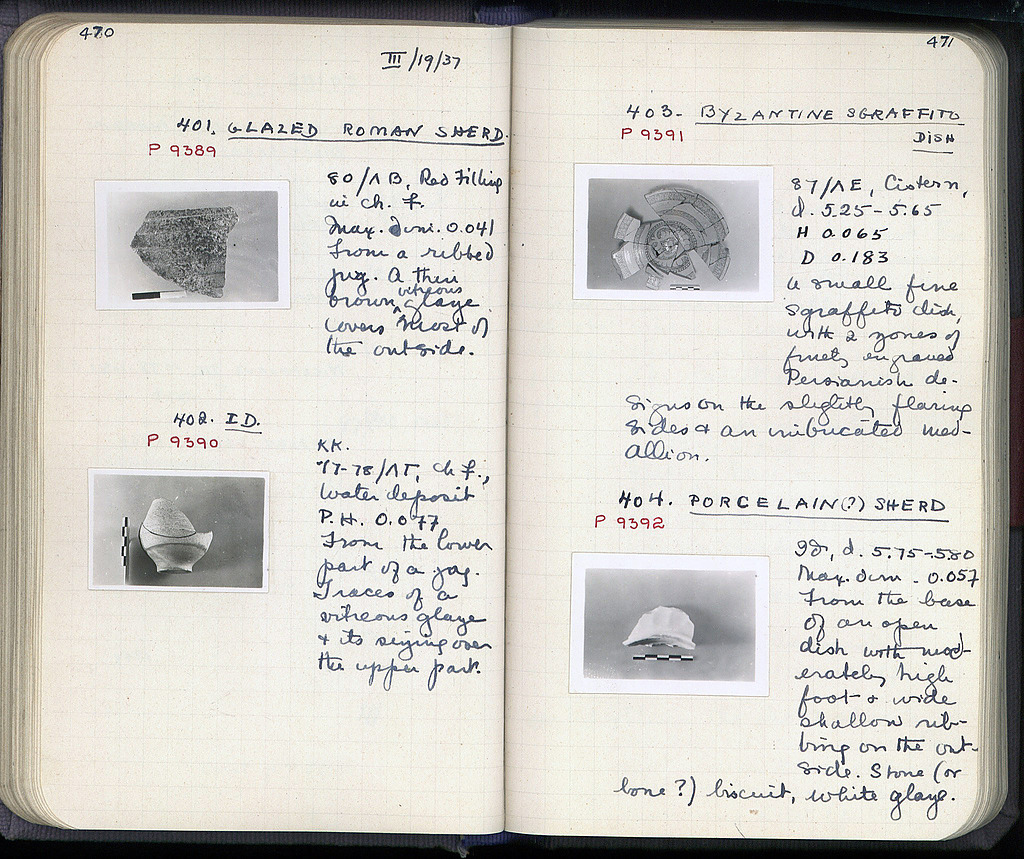 470
III/19/37
401. GLAZED ROMAN SHERD.
P 9389
80/ΛB, Red Filling
in ch. f.
Max. dim. 0.041
From a ribbed
jug. A thin
brown vitreous glaze
covers most of
the outside.
402. ID.
P 9390
KK.
77-78/ΛΓ, ch f.,
water deposit
P.H. 0.077
From the lower
part of a jug.
Traces of a
vitreous glaze
& its over
the upper part.
471
403. BYZANTINE SGRAFFITO
DISH
P 9391
87/ΛE, Cistern,
d. 5.25-5.65
H 0.065
D 0.183
A small fine
sgraffito dish,
with 2 zones of
finely engraved
Persianish de-
signs on the slightly flaring
sides & an imbricated med-
allion.
404. PORCELAIN(?) SHERD
P 9392
Id, d. 5.75-580
Max. dim. 0.057
From the base
of an open
dish with mod-
erately high
foot & wide
shallow rib-
bing on the out-
side. Stone (or
bone?) biscuit, white glaze.